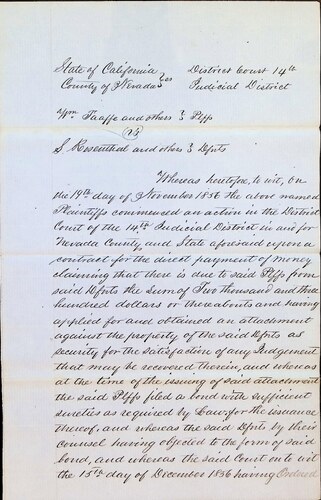 State of California } ss District Court 14th
County of Nevada } Judicial District
Wm Taaffe and others } Plffs
vs
S. Rosenthal and others } Dfnts
Whereas heretofore, to wit, On
the 19th day of November 1856 the above named
Plaintiffs commenced an action in the District
Court of the 14th Judicial District in and for
Nevada County and State aforesaid upon a
contract for the direct payment of money
claiming that there is due to said Plffs from
said Dfnts the Sum of Two thousand and three
hundred dollars or thereabouts and having
applied for and obtained an attachment
against the property of the said Dfnts as
security for the satisfaction of any Judgement
that may be recovered therein, and whereas
at the time of the issuing of said attachment
the said Plffs filed a bond with sufficient
sureties as required by Law, for the issuance
thereof, and whereas the said Dfnts by their
counsel having objected to the form of said
bond, and whereas the said Court on to wit
the 15th day of December 1856 having Ordered